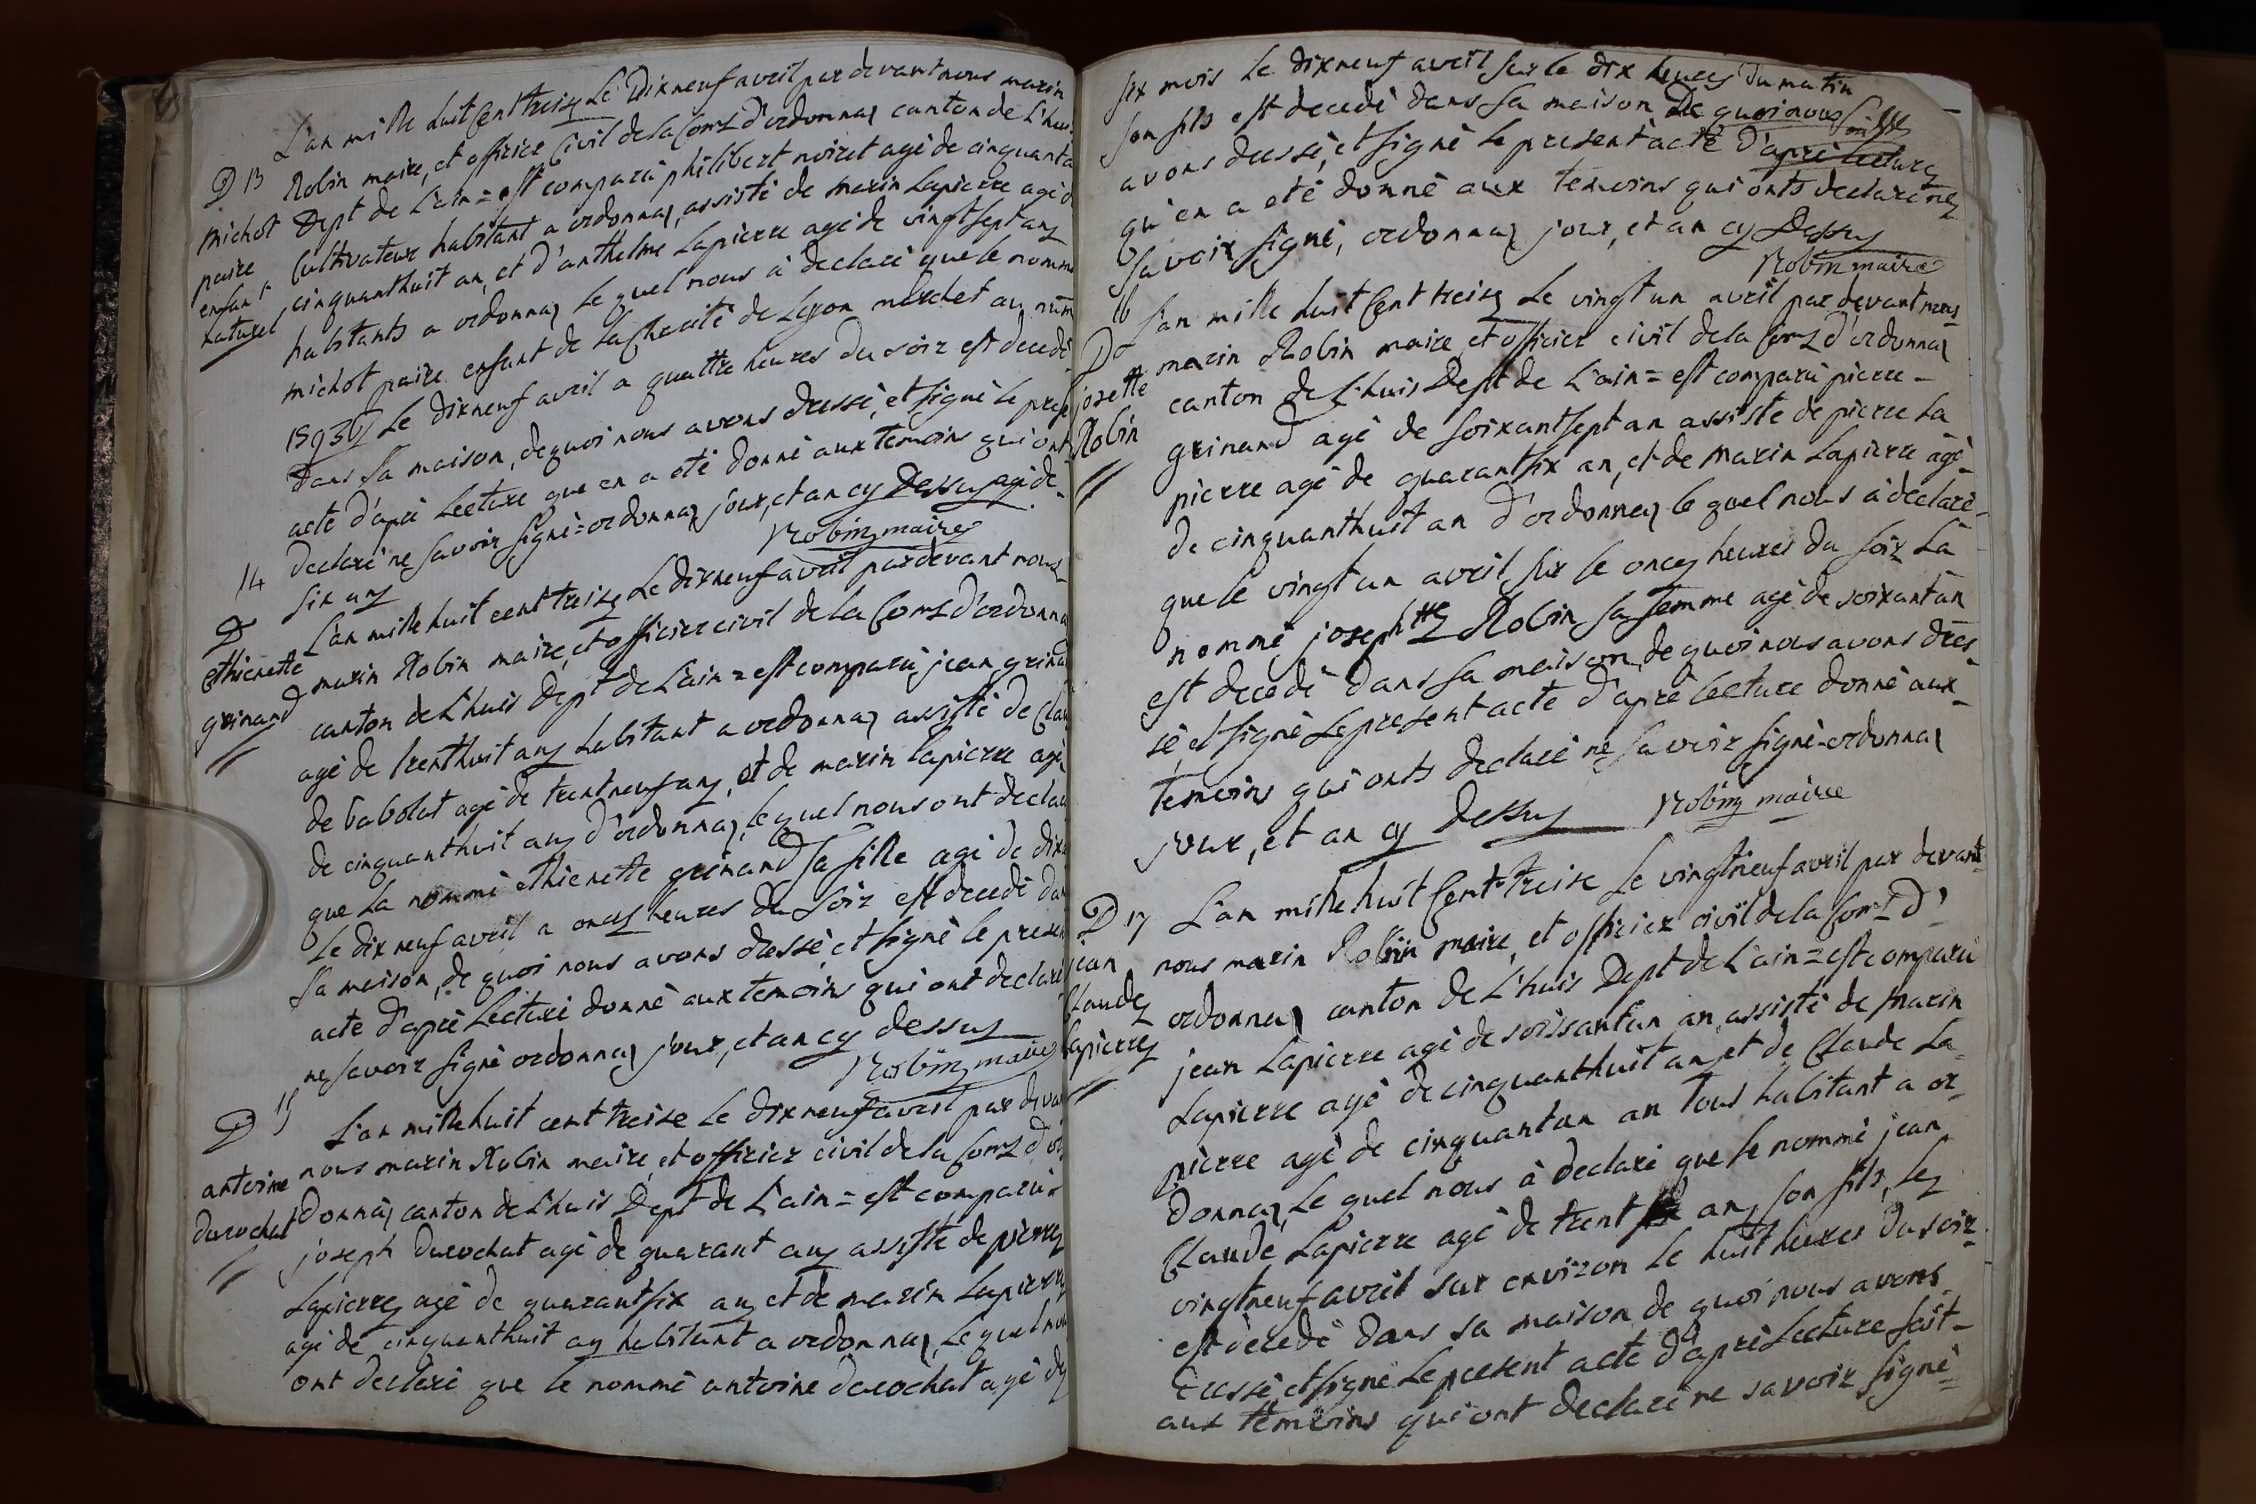 L'an mille huit Cent treize Le Dixneuf avril par devant nous marin
D 13
Robin maire, et officier Civil de la Com.e d'ordonnaz canton de L'huis
michot
Dept de L'ain = est comparu philibert noiret agé de cinquanta
paire
Cultivateur habitant a ordonnaz, assisté de marin Lapierre agé d
enfant
cinquanthuit an, et d'anthelme Lapierre agé de vingtsept anz
naturel
habitants a ordonnaz Le quel nous à declaré que le nomme
michot paire enfant de La Charité de Lyon au num
1593 Le dixneuf avril a quattre heures du soir est decedé
dans sa maison, dequoi nous avons dressé, et signé Le prese
acte d'apré Lecture que en a eté donné aux temoins qui ont
declaré ne savoir signé = ordonnaz jour, et an cy Dessuz agé de
six anz
Robinz maire
14
L'an mille huit cent treize Le dixneuf avril par devant nous
D
marin Robin maire, et officier civil de La Com.e d'ordonna
ethienette
canton de L'huis Dept de L'ain = est comparu jean grina
grinand
agé de trenthuit anz habitant a ordonnaz assisté de Clau
de babolat agé de trentneuf anz, et de marin Lapierre agé
de cinquanthuit anz d'ordonnaz, Lequel nous ont declaré
que La nommé ethienette grinand sa fille agé de dix
Le dixneuf avril a onze heures du soir est decedé dan
sa maison, de quoi nous avons dressé, et signé le presen
acte d'apré Lecture donné aux temoins qui ont declaré
ne savoir signé ordonnaz jour, et an cy dessuz
Robinz maire
D 15
L'an mille huit cent treize Le dixneuf avril par deva
antoine
nous marin Robin maire, et officier civil de la Com.e d'or
durochat
donnaz canton de L'huis Dept de L'ain = est comparu
joseph durochat agé de quarant anz assisté de pierre
Lapierre agé de quarantsix anz et de marin Lapierre
agé de cinquanthuit an habitant a ordonnaz, Le quel nou
ont declaré que le nommé antoine durochat agé de
six mois Le dixneuf avril sur le dix heures du matin
son fils est decedé dans sa maison De quoi nous
avons dressé, et signé le present acte d'apré Lecture
qu'en a eté donné aux temoins qui onts declaré ne
savoir signé, ordonnaz jour, et an cy Dessuz
Robin maire
16
L'an mille huit Cent treize Le vingt un avril par devant nous
D
marin Robin maire, et officier civil de la Com.e d'ordonnaz
josette
canton de L'huis Dept de L'ain = est comparu pierre -
Robin
grinand agé de soixantsept an assisté de pierre La
pierre agé de quarantsix an, et de marin Lapierre agé
de cinquanthuit an d'ordonnaz le quel nous à declaré
que le vingt un avril sur le onze heures du soir La
nommé josephtte Robin sa femme agé de soixant an
est decedé dans sa maison, de quoi nous avons dres
sé, et signé Le present acte d'apré lecture donné aux
temoins qui onts declaré ne savoir signé-ordonnaz
jour, et an cy Dessuz Robinz maire
D 17
L'an mille huit Cent treize Le vingtneuf avril par devant
nous marin Robin maire, et officier civil de la Com.e d'
jean
ordonnaz canton de L'huis Dept de L'ain = est comparu
Claude
jean Lapierre agé de soissantun an, assisté de marin
Lapierre
Lapierre agé de cinquanthuit an et de Claude La
pierre agé de cinquantun an tous habitant a or
donnaz, Le quel nous à declaré que le nommé jean
Claude Lapierre agé de trent an, son fils, le
vingtneuf avril sur environ le huit heures du soir
est decedé dans sa maison de quoi nous avons
dressé, et signé Le present acte d'apré Lecture fait
aux temoins qui ont declaré ne savoir signé